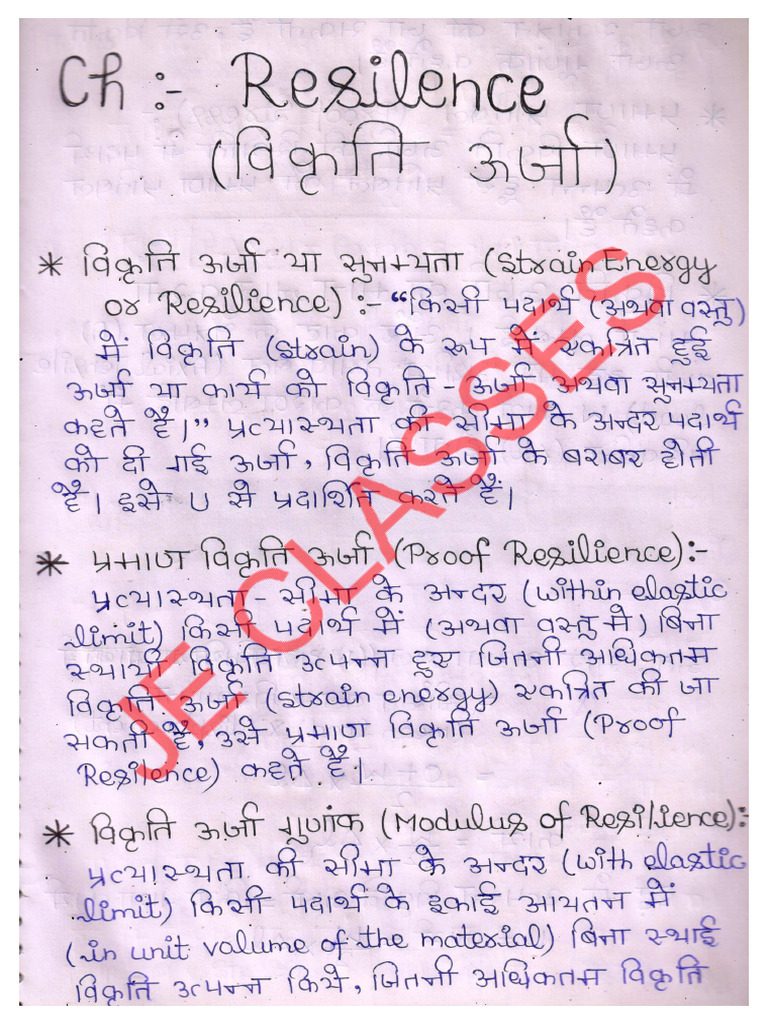 Ch :- Resilence
(विकृति ऊर्जा)
* विकृति ऊर्जा या सुनम्यता (Strain Energy
or Resilience) :- “किसी पदार्थ (अथवा वस्तु)
में विकृति (strain) के रूप में एकत्रित हुई
ऊर्जा या कार्य को विकृति - ऊर्जा अथवा सुनम्यता
कहते हैं।” प्रत्यास्थता की सीमा के अन्दर पदार्थ
को दी गई ऊर्जा, विकृति ऊर्जा के बराबर होती
है। इसे U से प्रदर्शित करते हैं।
* प्रमाण विकृति ऊर्जा (Proof Resilience):-
प्रत्यास्थता - सीमा के अन्दर (within elastic
limit) किसी पदार्थ में (अथवा वस्तु मे) बिना
स्थायी विकृति उत्पन्न हुए जितनी अधिकतम
विकृति ऊर्जा (strain energy) एकत्रित की जा
सकती है, उसे प्रमाण विकृति ऊर्जा (Proof
Resilence) कहते हैं।
* विकृति ऊर्जा गुणांक (Modulus of Resilience):-
प्रत्यास्थता की सीमा के अन्दर (with elastic
limit) किसी पदार्थ के इकाई आयतन में
(in unit volume of the material) बिना स्थाई
विकृति उत्पन्न किये, जितनी अधिकतम विकृति
JE CLASSES